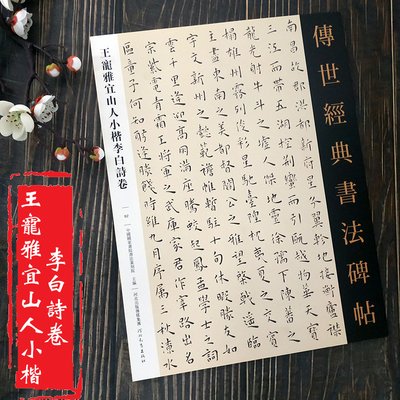 傳世經典書法碑帖
南昌故郡洪都新府星分翼軫地接衡廬襟
三江而帶五湖控荊蠻而引甌越物華天寶
龍光射牛斗之墟人傑地靈徐孺下陳蕃之
榻雄州霧列俊彩星馳臺隍枕夷夏之交賓
主盡東南之美都督閻公之雅望棨戟遙臨
宇文新州之懿範襜帷暫駐十旬休暇勝友如
雲千里逢迎高朋滿座騰蛟起鳳孟學士之詞
宗紫電青霜王將軍之武庫家君作宰路出名
區童子何知躬逢勝餞時維九月序屬三秋潦水
王寵雅宜山人小楷李白詩卷
李白詩卷
王寵雅宜山人小楷